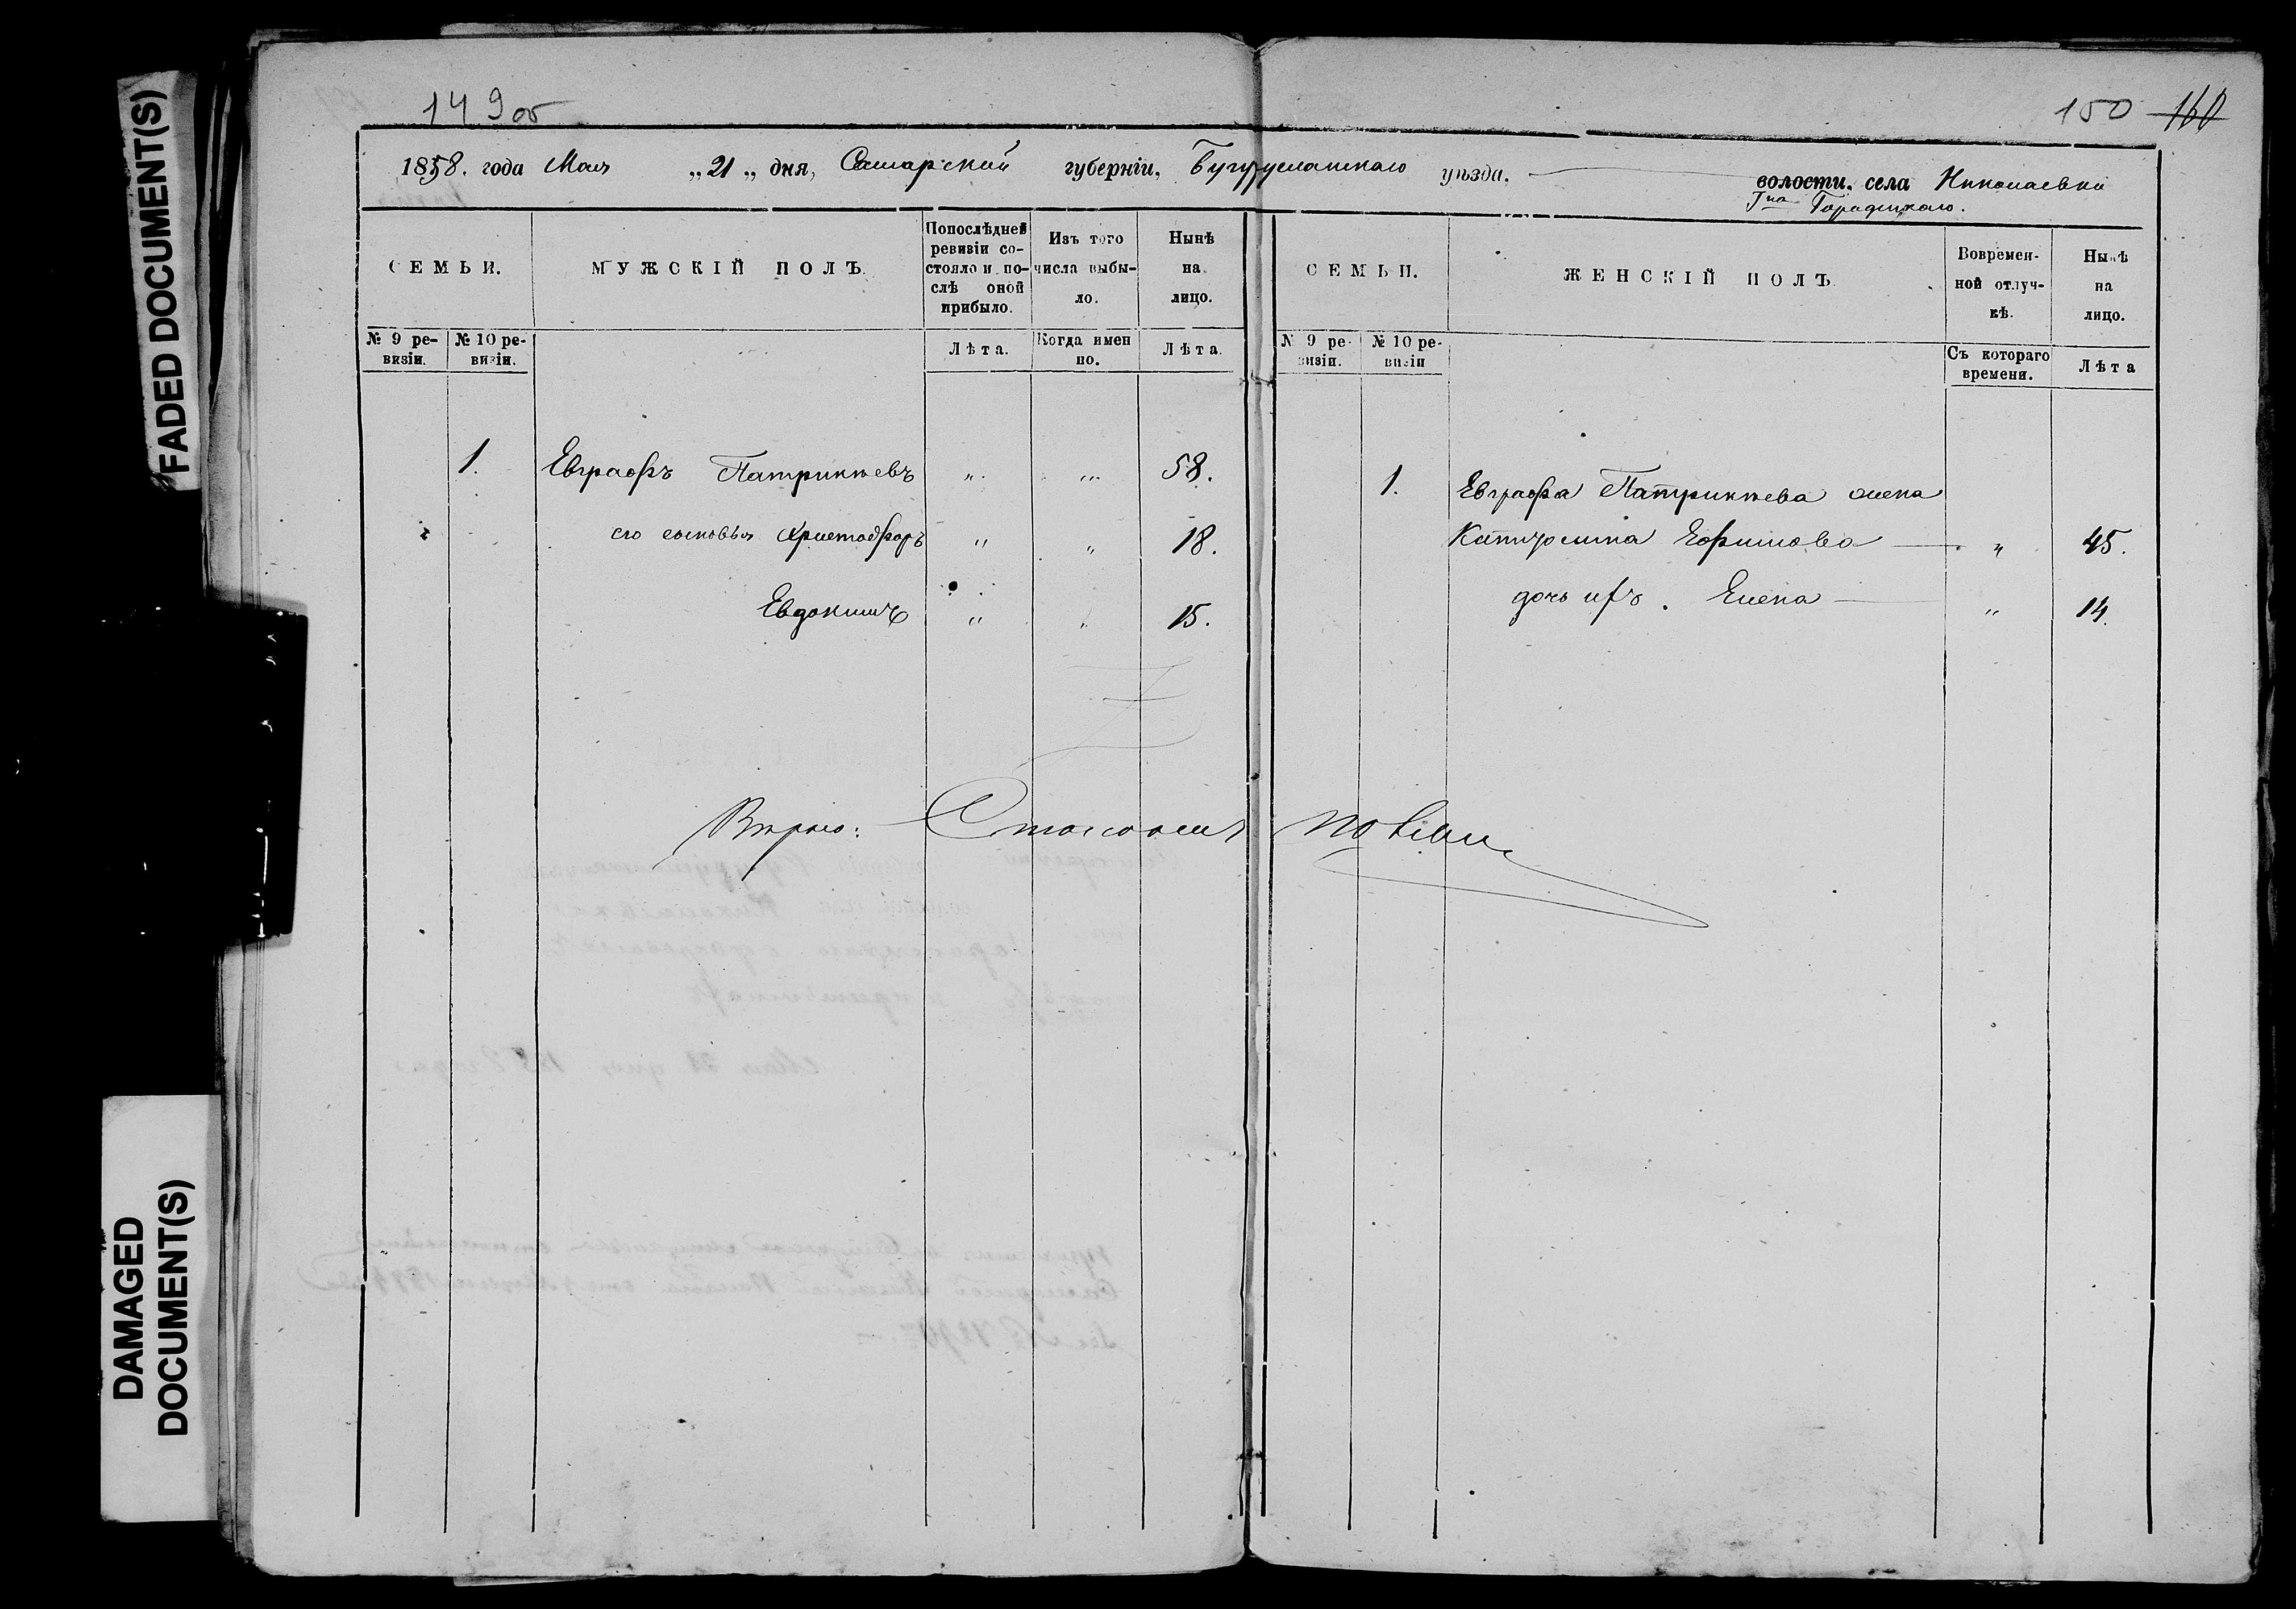 FADED DOCUMENT(S)
DAMAGED DOCUMENT(S)
149об
150 160
1858. года Мая „21„ дня, Самарской губерніи, Бугурусланскаго уѣзда,
волости, села Николаевки
Гна Городецкаго.
СЕМЬИ.
МУЖСКІЙ ПОЛЪ.
Попослѣдней ревизіи состояло и послѣ оной прибыло.
Изъ того числа выбыло.
Нынѣ на лицо.
№ 9 ревизіи.
№ 10 ревизіи.
Лѣта.
Когда именно.
Лѣта.
1. Евграфъ Патрикѣевъ „ „ 58.
его сыновья Христофоръ „ „ 18.
Евдокимъ „ „ 15.
Вѣрно:
СЕМЬИ.
ЖЕНСКІЙ ПОЛЪ
Вовременной отлучкѣ.
Нынѣ на лицо.
№ 9 ревизіи.
№ 10 ревизіи
Съ котораго времени.
Лѣта
1. Евграфа Патрикѣева жена
Катерина Ефимова — „ 45.
дочь ихъ. Елена — „ 14.